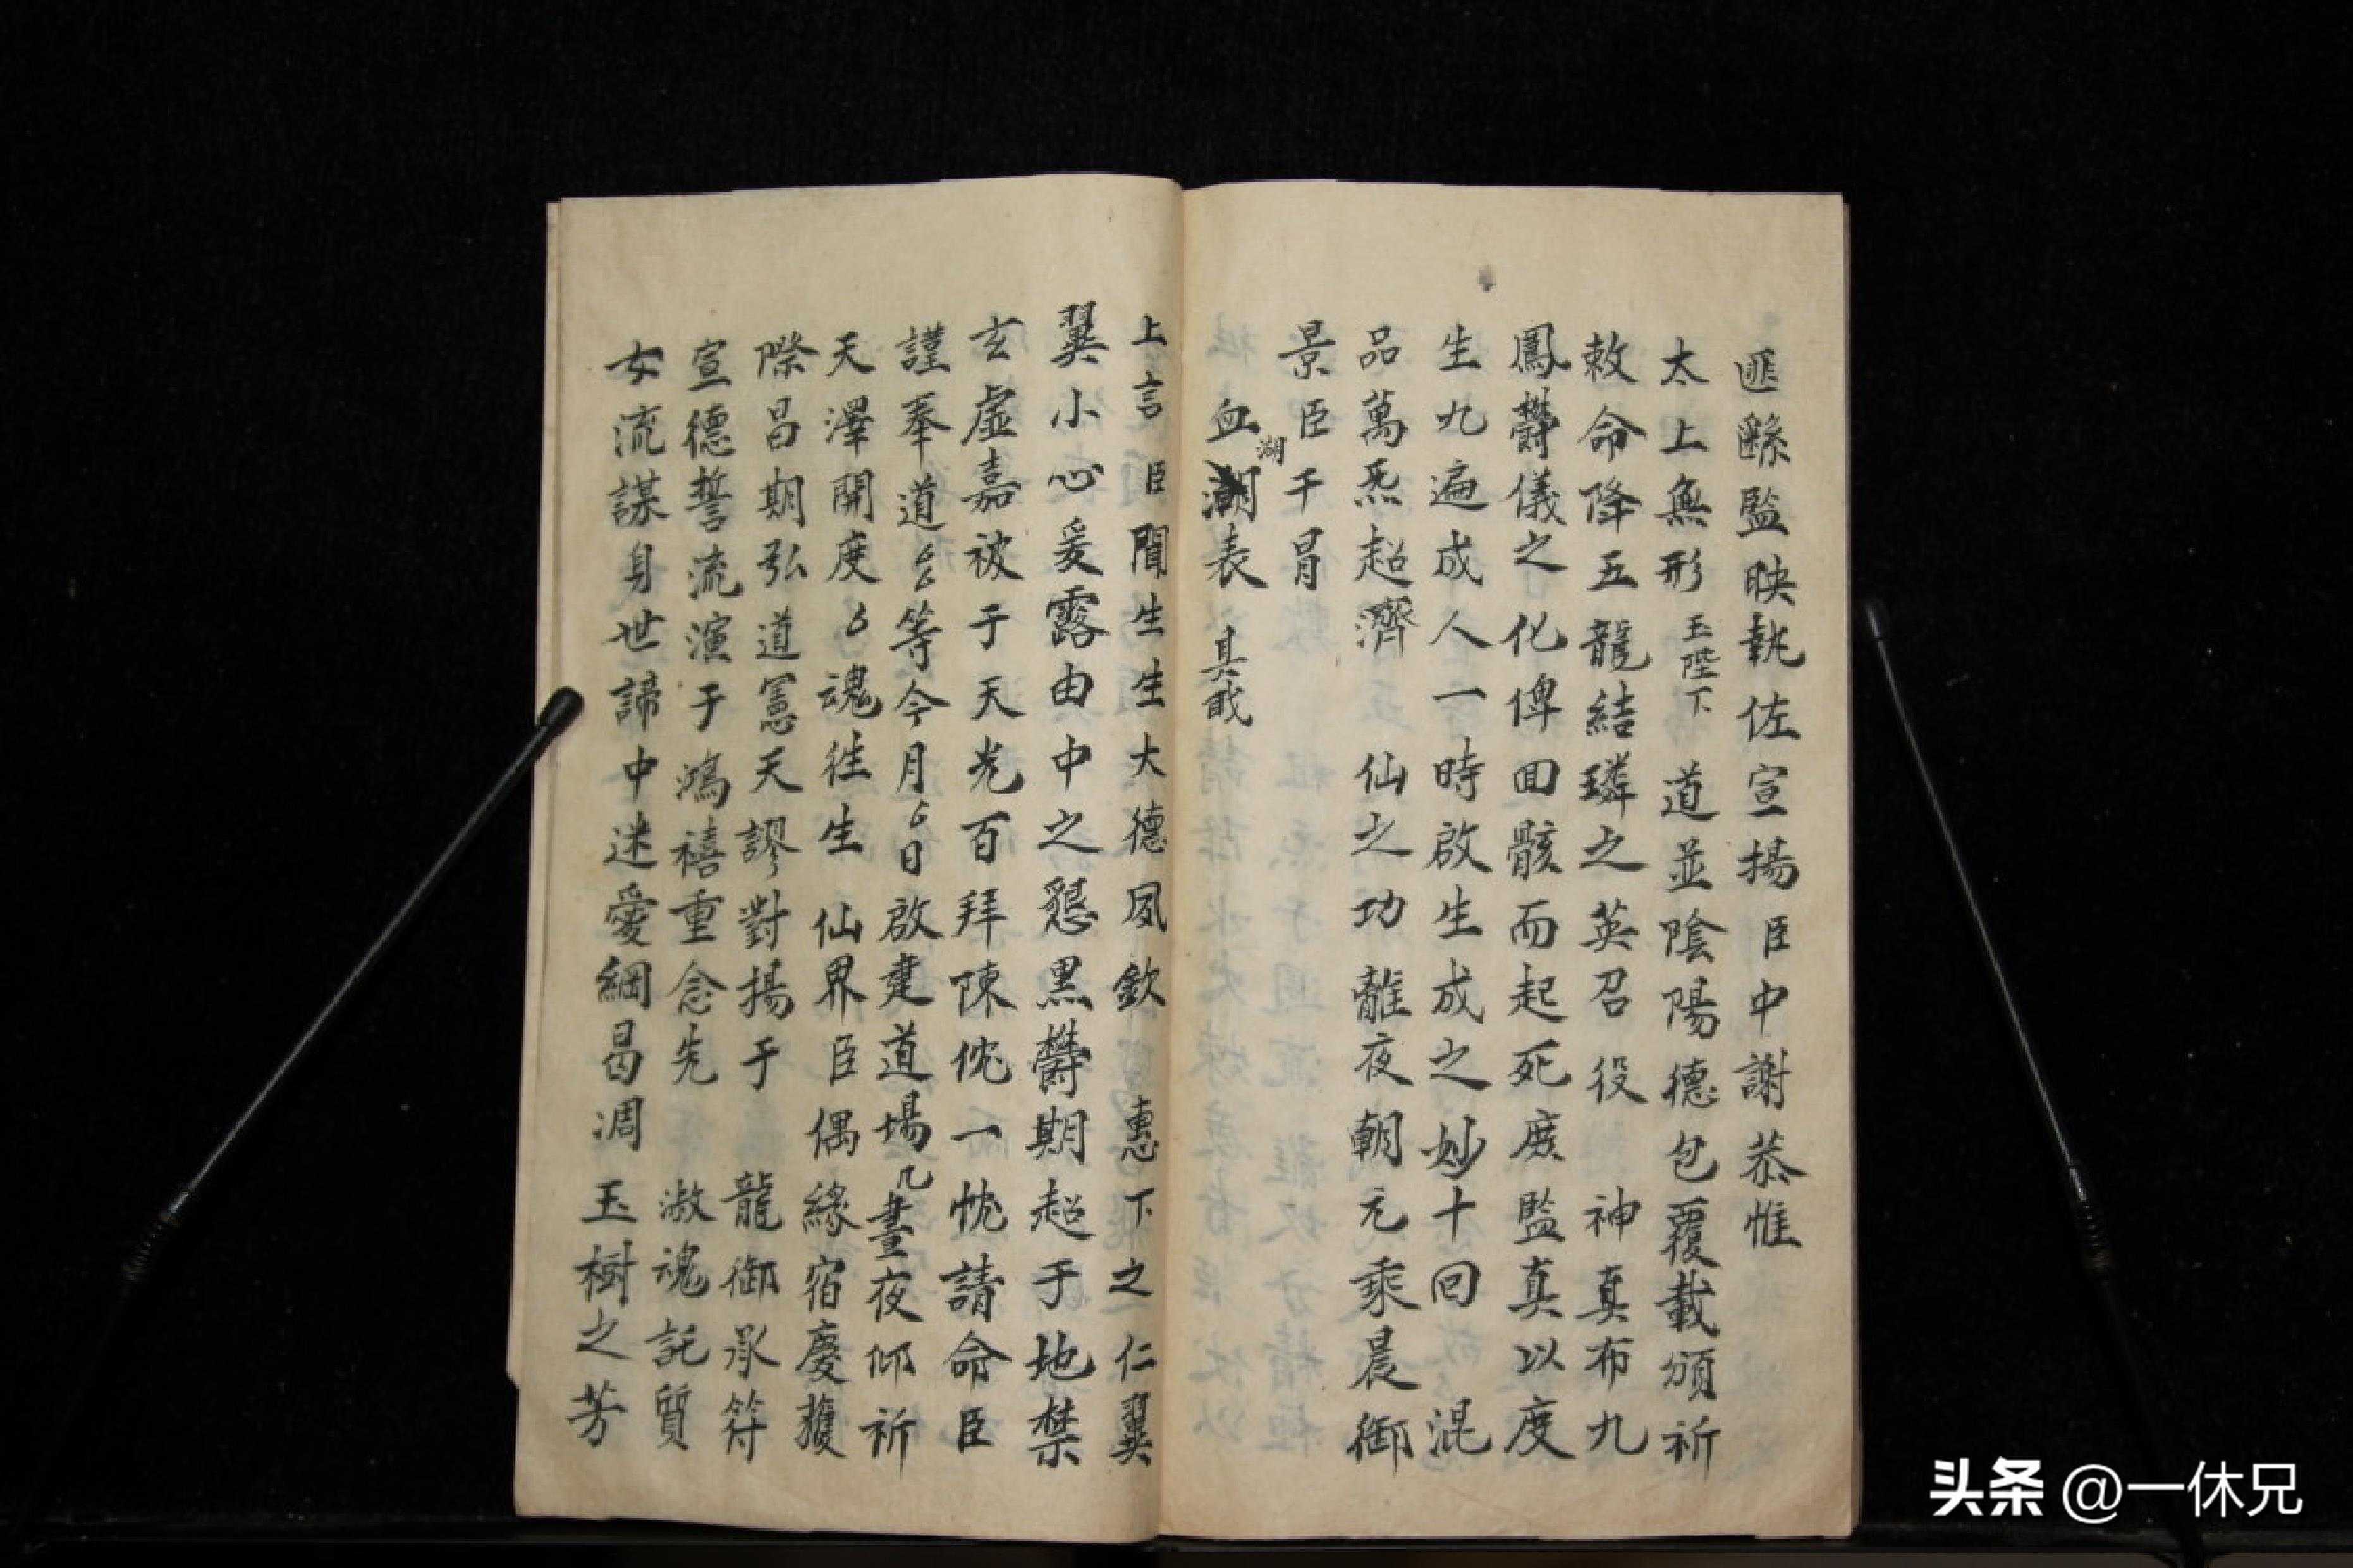 匪繇監映執佐宣揚臣中謝恭惟
太上無形玉陛下道並陰陽德包覆載頒祈
敕命降五龍結璘之英召役神真布九
鳳欎儀之化俾回骸而起死廣監真以度
生九遍成人一時啟生成之妙十回混
品萬炁超濟仙之功離夜朝元乘晨御
景臣干冒
血湖表 具戢
上言臣聞生生大德夙欽惠下之仁翼
翼小心爰露由中之懇黑欎期超于地禁
玄虛嘉被于天光百拜陳忱一忱請命臣
謹奉道厶厶等今月厶日啟建道場几晝夜仰祈
天澤開度厶魂往生仙界臣偶緣宿慶獲
際昌期弘道憲天謬對揚于龍御承符
宣德誓流演于鴻禧重念先淑魂託質
女流謀身世諦中迷愛網曷凋玉樹之芳
头条 @一休兄